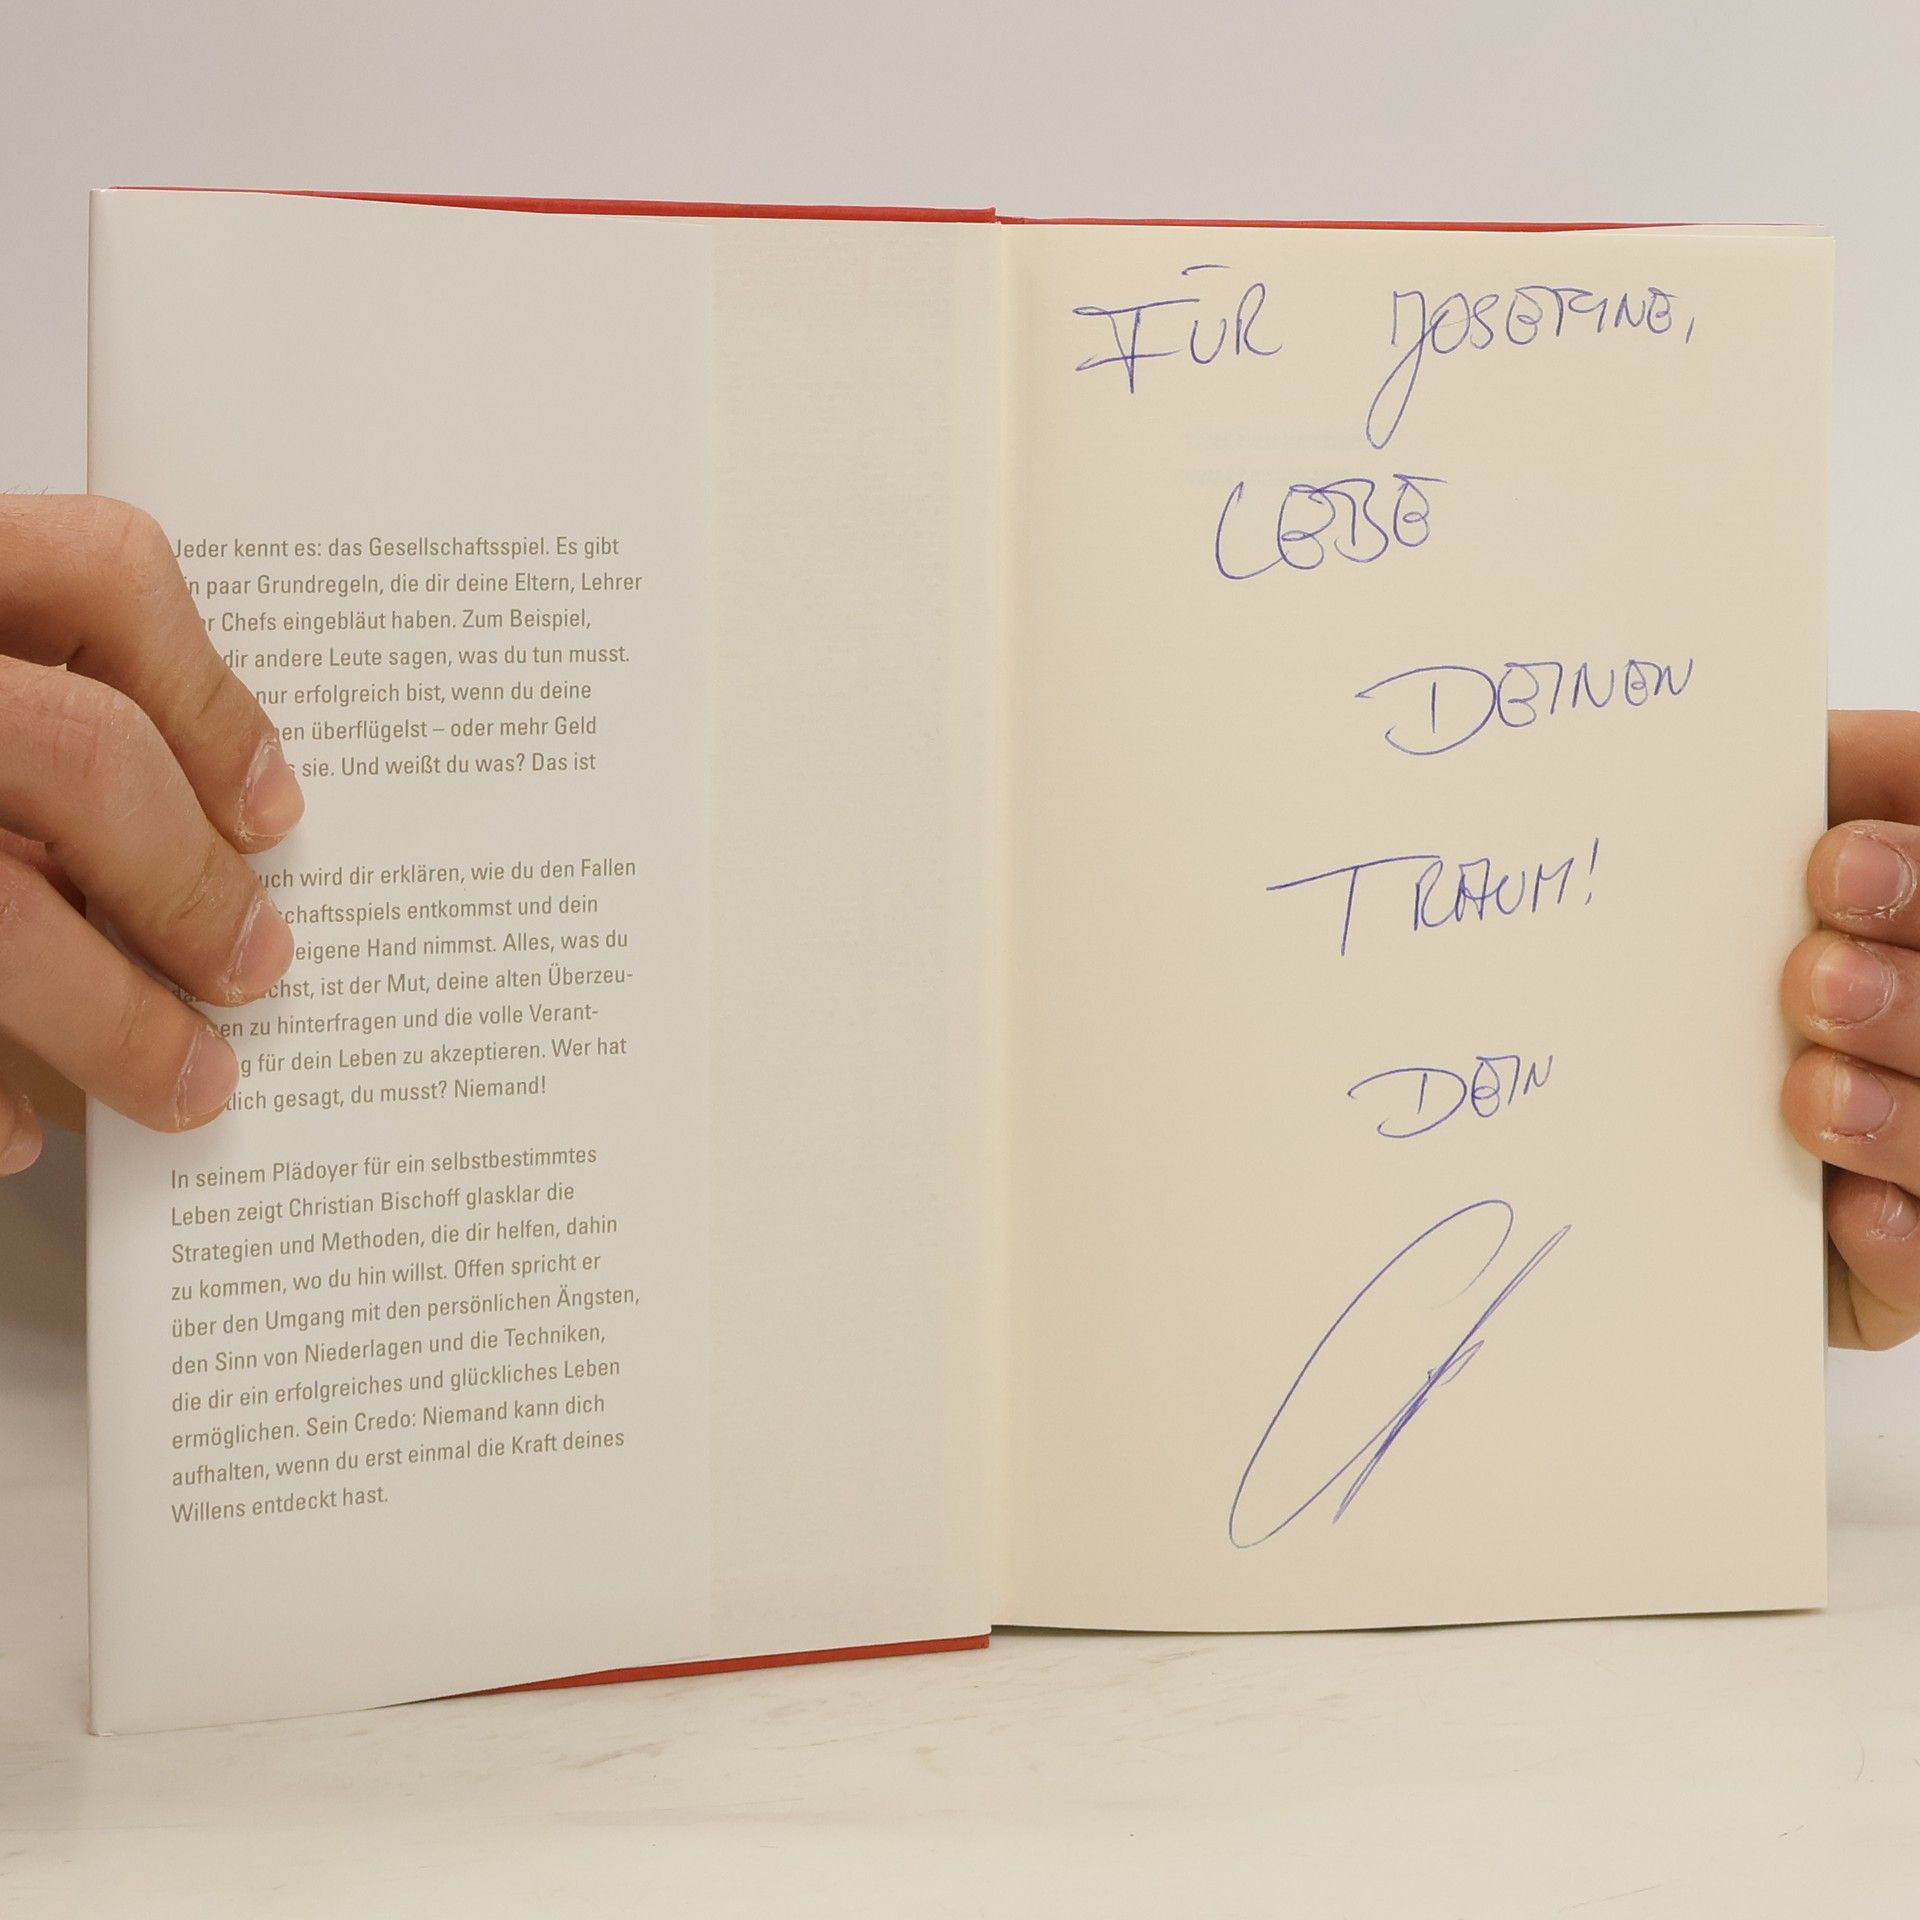 Jeder kennt es: das Gesellschaftsspiel. Es gibt
paar Grundregeln, die dir deine Eltern, Lehrer
Chefs eingebläut haben. Zum Beispiel,
dir andere Leute sagen, was du tun musst.
nur erfolgreich bist, wenn du deine
überflügelst – oder mehr Geld
sie. Und weißt du was? Das ist
wird dir erklären, wie du den Fallen
entkommst und dein
eigene Hand nimmst. Alles, was du
ist der Mut, deine alten Überzeu-
zu hinterfragen und die volle Verant-
für dein Leben zu akzeptieren. Wer hat
gesagt, du musst? Niemand!
In seinem Plädoyer für ein selbstbestimmtes
Leben zeigt Christian Bischoff glasklar die
Strategien und Methoden, die dir helfen, dahin
zu kommen, wo du hin willst. Offen spricht er
über den Umgang mit den persönlichen Ängsten,
den Sinn von Niederlagen und die Techniken,
die dir ein erfolgreiches und glückliches Leben
ermöglichen. Sein Credo: Niemand kann dich
aufhalten, wenn du erst einmal die Kraft deines
Willens entdeckt hast.
FÜR JOSEFINE,
LEBE
DEINEN
TRAUM!
DEIN